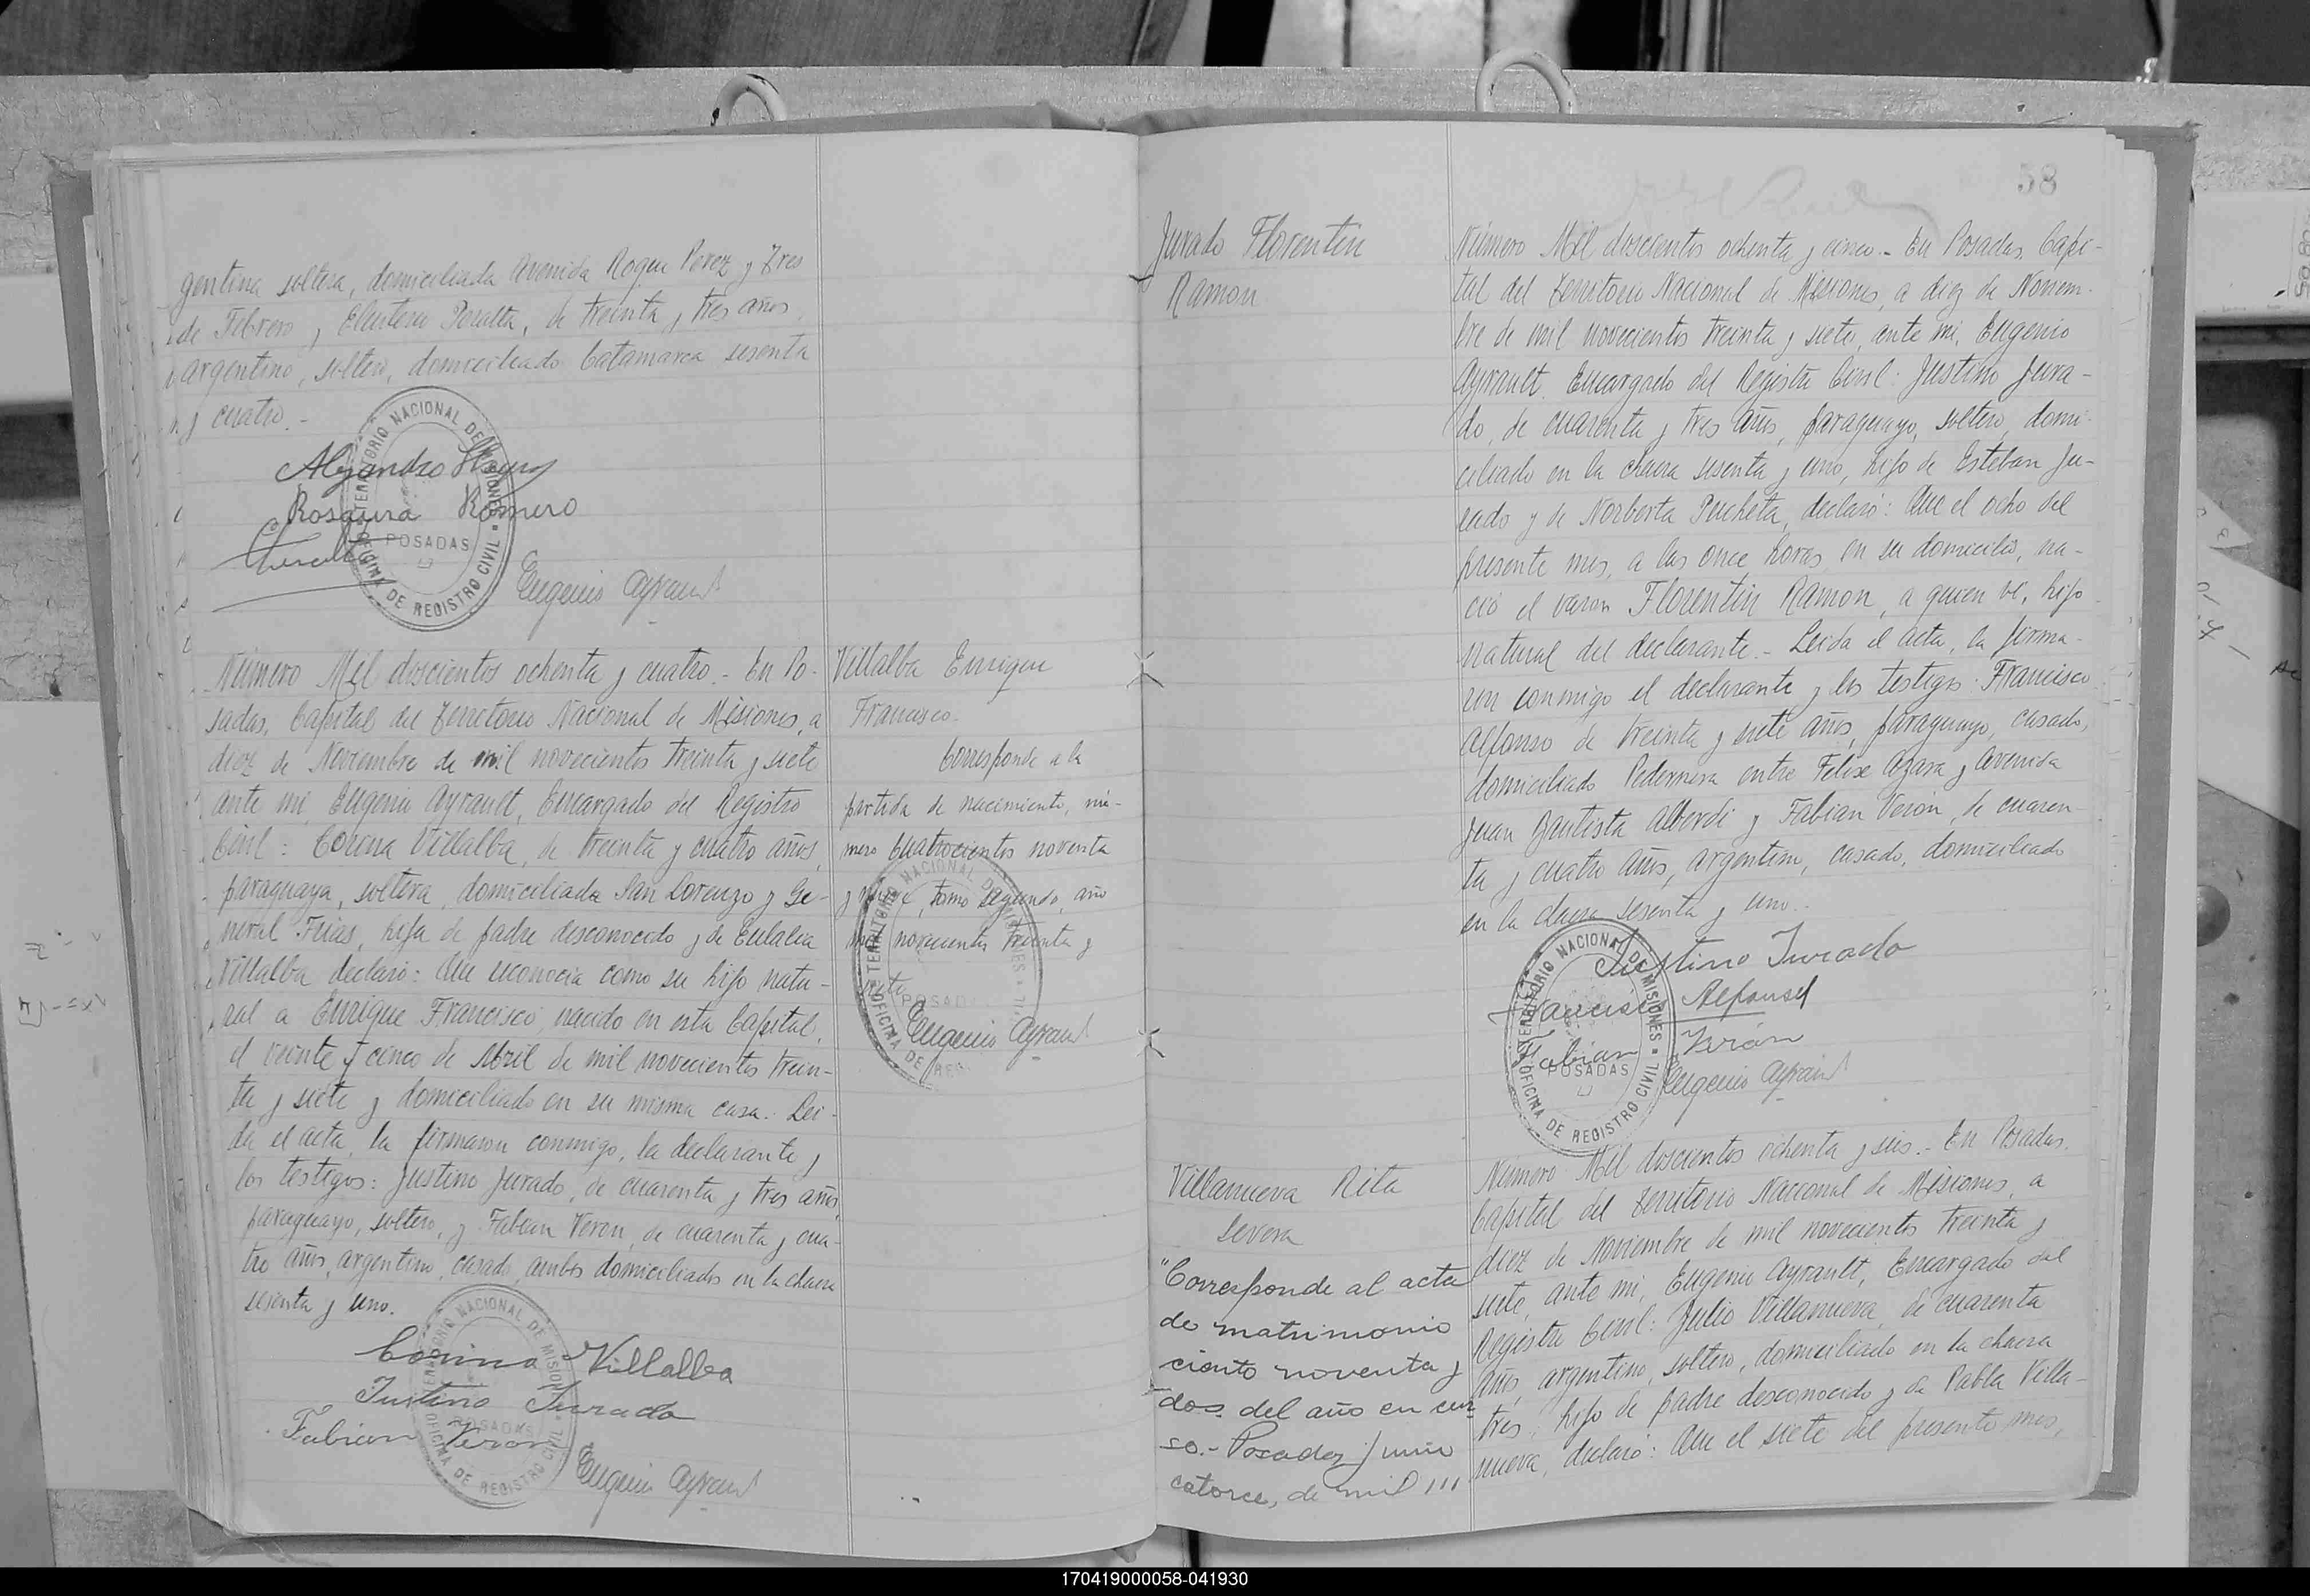 gentina soltera, domiciliada Avenida Roque Perez y Tres
de Febrero y Eleuterio Peralta, de treinta y tres años,
argentino, soltero, domiciliado Catamarca sesenta
y cuatro.-
Alejandro
Rosaura Romero
Eugenio Ayrault
TERRITORIO NACIONAL DE MISIONES
POSADAS
OFICINA DE REGISTRO CIVIL
Número Mil doscientos ochenta y cuatro.- En Po-
sadas, Capital del Territorio Nacional de Misiones, a
diez de Noviembre de mil novecientos treinta y siete
ante mi, Eugenio Ayrault, Encargado del Registro
Civil: Corina Villalba, de treinta y cuatro años,
paraguaya, soltera, domiciliada San Lorenzo y Ge-
neral Frias, hija de padre desconocido y de Eulalia
Villalba declaró: Que reconocia como su hijo natu-
ral a Enrique Francisco, nacido en esta Capital,
el veinte y cinco de Abril de mil novecientos trein-
ta y siete y domiciliado en su misma casa.- Lei-
da el acta, la firmaron conmigo, la declarante y
los testigos: Justino Jurado, de cuarenta y tres años
paraguayo, soltero, y Fabian Veron, de cuarenta y cua-
tro años, argentino, casado, ambos domiciliados en la chacra
sesenta y uno.
Corina Villalba
Justino Jurado
Fabian Veron
Eugenio Ayrault
TERRITORIO NACIONAL DE MISIONES
POSADAS
OFICINA DE REGISTRO CIVIL
Villalba Enrique
Francisco.
Corresponde a la
partida de nacimiento, nú-
mero cuatrocientos noventa
y nueve, tomo segundo, año
mil novecientos treinta y
siete
Eugenio Ayrault
TERRITORIO NACIONAL DE MISIONES
POSADAS
OFICINA DE
58
Jurado Florentin
Ramon
Número Mil doscientos ochenta y cinco.- En Posadas, Capi-
tal del Territorio Nacional de Misiones, a diez de Noviem-
bre de mil novecientos treinta y siete, ante mi, Eugenio
Ayrault, Encargado del Registro Civil: Justino Jura-
do, de cuarenta y tres años, paraguayo, soltero, domi-
ciliado en la chacra sesenta y uno, hijo de Esteban Ju-
rado y de Norberta Pucheta, declaró: Que el ocho del
presente mes, a las once horas, en su domicilio, na-
ció el varon Florentin Ramon, a quien vi, hijo
natural del declarante.- Leida el acta, la firma-
ron conmigo el declarante y los testigos: Francisco
Alfonso de treinta y siete años, paraguayo, casado,
domiciliado Pedernera entre Felix Azara y Avenida
Juan Bautista Alberdi y Fabian Verón, de cuaren-
ta y cuatro años, argentino, casado, domiciliado
en la chacra sesenta y uno.-
Justino Jurado
Francisco Alfonso
Fabian Verón
Eugenio Ayrault
TERRITORIO NACIONAL DE MISIONES
POSADAS
OFICINA DE REGISTRO CIVIL
Villanueva Rita
Severa
"Corresponde al acta
de matrimonio
ciento noventa y
dos del año en cur
so.- Posadas, junio
catorce, de mil
Número Mil doscientos ochenta y seis.- En Posadas,
Capital del Territorio Nacional de Misiones, a
diez de Noviembre de mil novecientos treinta y
siete, ante mi, Eugenio Ayrault, Encargado del
Registro Civil: Julio Villanueva, de cuarenta
años, argentino, soltero, domiciliado en la chacra
tres, hijo de padre desconocido y de Pabla Villa-
nueva, declaró: Que el siete del presente mes,
170419000058-041930